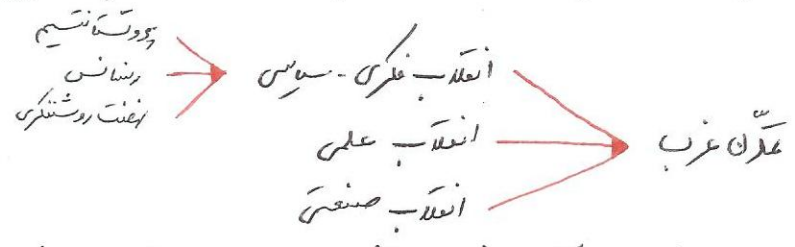 پروتستانتسیم
رنسانس
نهضت روشنفکری
انقلاب فکری - سیاسی
انقلاب علمی
انقلاب صنعتی
تمدّن غرب